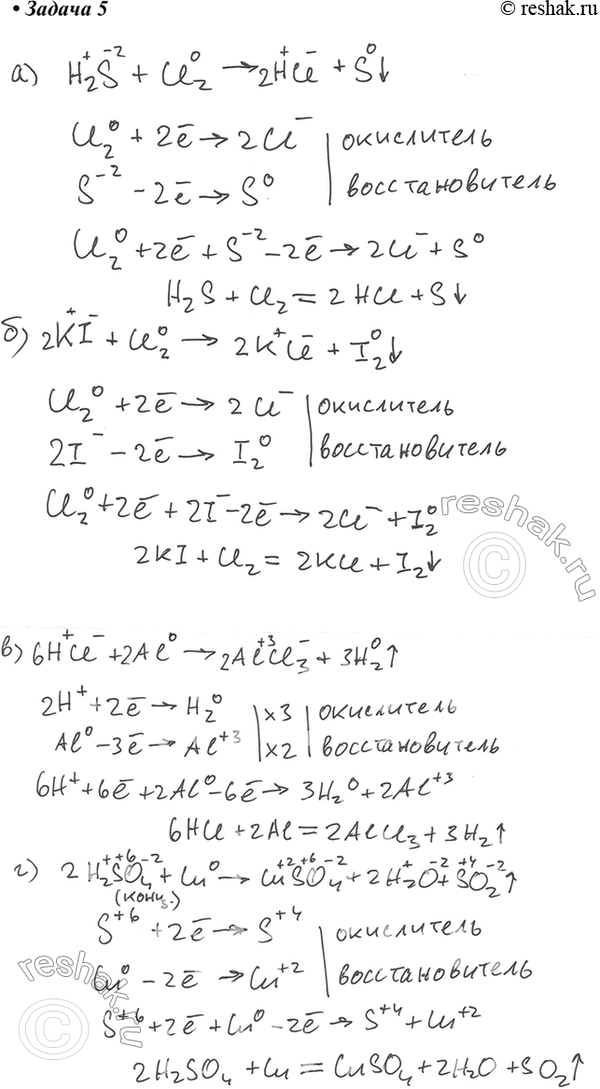 • Задача 5
© reshak.ru
а) H₂⁺S⁻² + Cl₂⁰ → 2H⁺Cl⁻ + S⁰↓
Cl₂⁰ + 2ē → 2Cl⁻ | окислитель
S⁻² - 2ē → S⁰ | восстановитель
Cl₂⁰ + 2ē + S⁻² - 2ē → 2Cl⁻ + S⁰
H₂S + Cl₂ = 2HCl + S↓
б) 2K⁺I⁻ + Cl₂⁰ → 2K⁺Cl⁻ + I₂⁰↓
Cl₂⁰ + 2ē → 2Cl⁻ | окислитель
2I⁻ - 2ē → I₂⁰ | восстановитель
Cl₂⁰ + 2ē + 2I⁻ - 2ē → 2Cl⁻ + I₂⁰
2KI + Cl₂ = 2KCl + I₂↓
reshak.ru
©
в) 6H⁺Cl⁻ + 2Al⁰ → 2Al⁺³Cl₃⁻ + 3H₂⁰↑
2H⁺ + 2ē → H₂⁰ | x3 | окислитель
Al⁰ - 3ē → Al⁺³ | x2 | восстановитель
6H⁺ + 6ē + 2Al⁰ - 6ē → 3H₂⁰ + 2Al⁺³
6HCl + 2Al = 2AlCl₃ + 3H₂↑
г) 2H₂⁺S⁺⁶O₄⁻² + Cu⁰ → Cu⁺²S⁺⁶O₄⁻² + 2H₂⁺O⁻² + S⁺⁴O₂⁻²↑
(конц.)
S⁺⁶ + 2ē → S⁺⁴ | окислитель
Cu⁰ - 2ē → Cu⁺² | восстановитель
S⁺⁶ + 2ē + Cu⁰ - 2ē → S⁺⁴ + Cu⁺²
2H₂SO₄ + Cu = CuSO₄ + 2H₂O + SO₂↑
reshak.ru
©